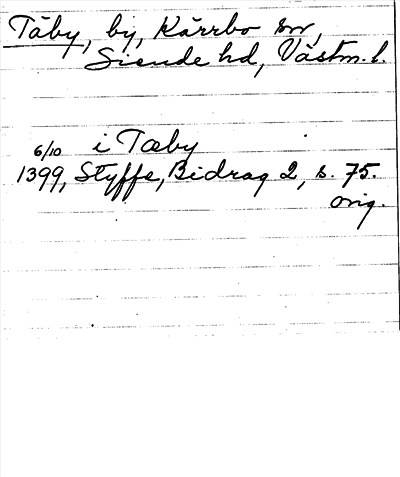 Täby, by, Kärrbo sn,
Siende hd, Västm. l.
6/10 i Tæby
1399, Styffe, Bidrag 2, s. 75.
orig.